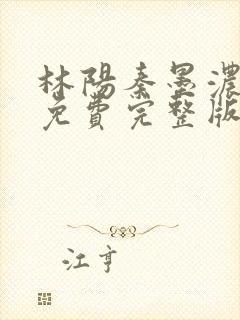 林陽秦墨濃
免費完整版
江亨